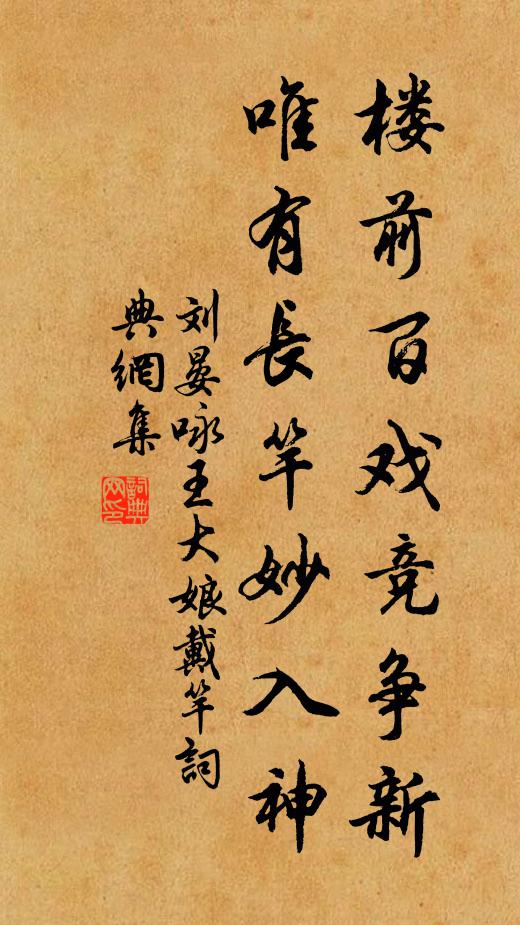 楼前百戏竞争新
唯有長竿妙入神
刘晏咏王大娘戴竿詞
典網集
詞典网印